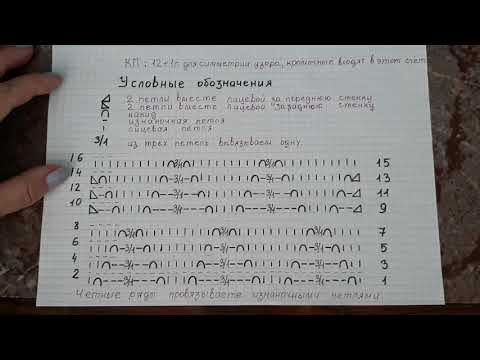 КП: 12+1п для симметрии узора, кромочные входят в этот счет
Условные обозначения
2 петли вместе лицевой за переднюю стенку
2 петли вместе лицевой за заднюю стенку
накид
изнаночная петля
лицевая петля
3/1 из трех петель вывязываем одну.
16 3/1 3/1 15
14 3/1 3/1 13
12 3/1 3/1 11
10 3/1 3/1 9
8 3/1 3/1 3/1 7
6 3/1 3/1 3/1 5
4 3/1 3/1 3/1 3
2 3/1 3/1 3/1 1
Четные ряды провязываете изнаночными петлями